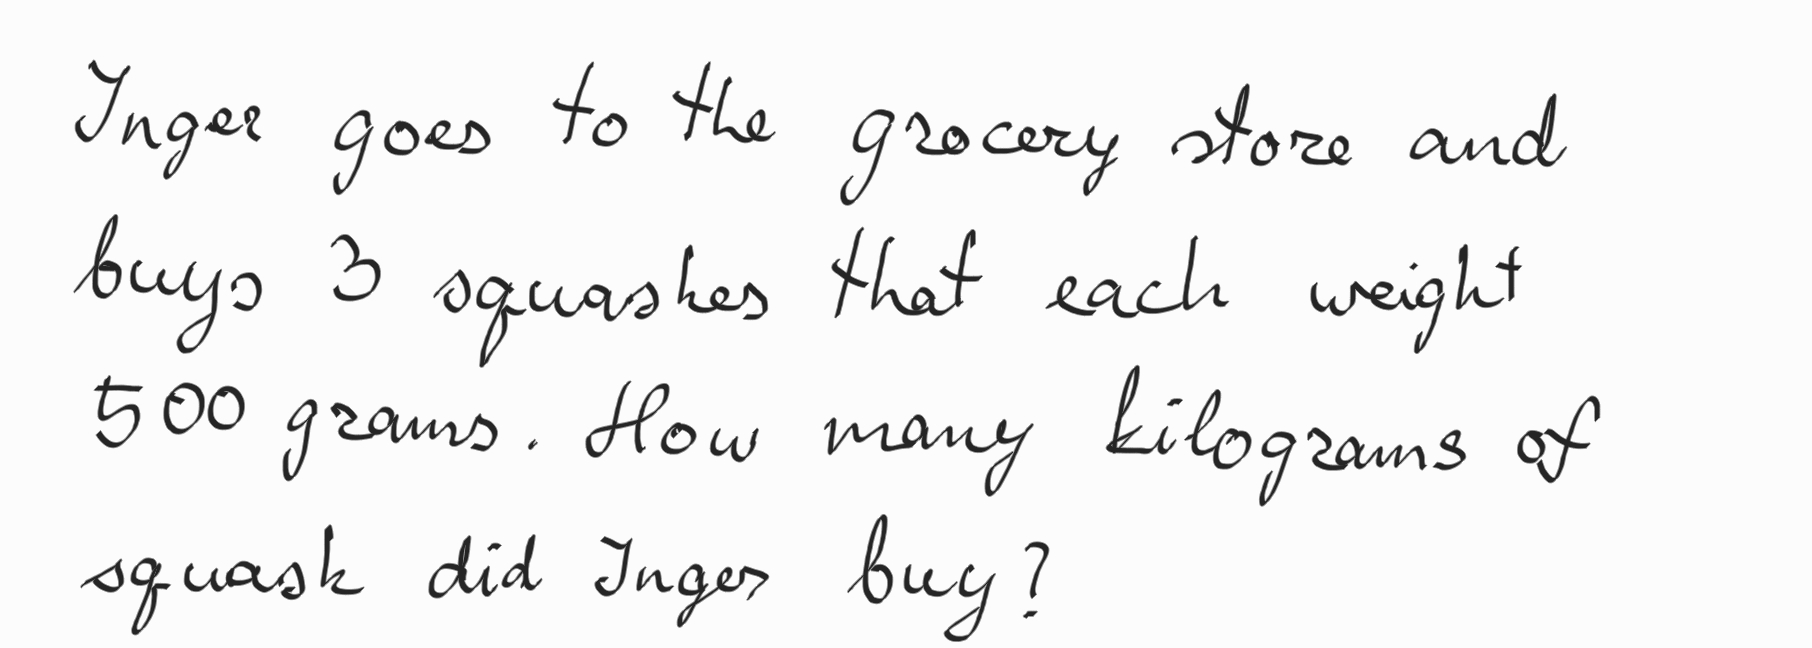 Inger goes to the grocery store and
buys 3 squashes that each weight
500 grams. How many kilograms of
squash did Inger buy?